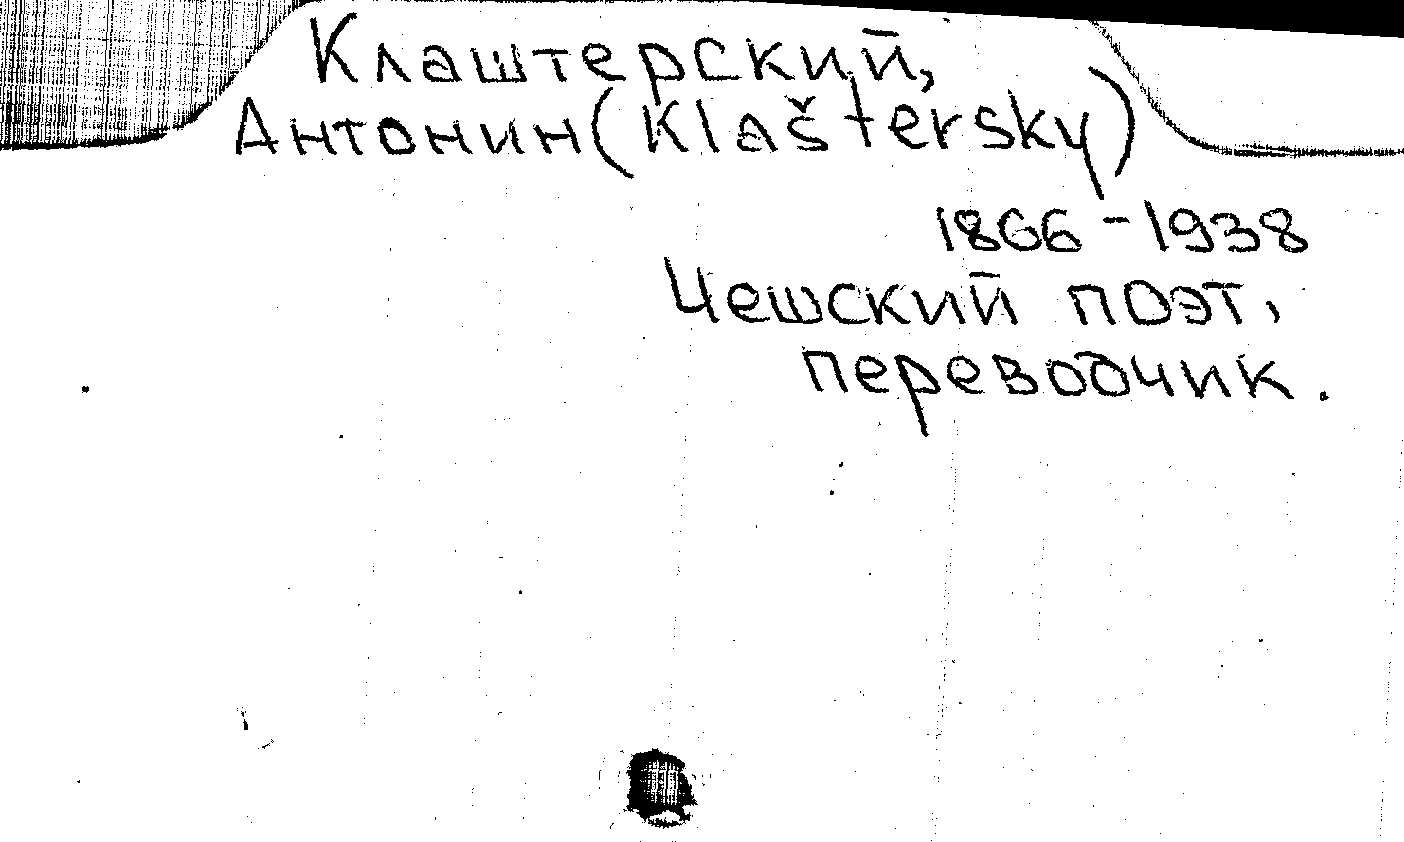 Клаштерский,
Антонин (Klaštersky)
1866-1938
Чешский поэт,
переводчик.